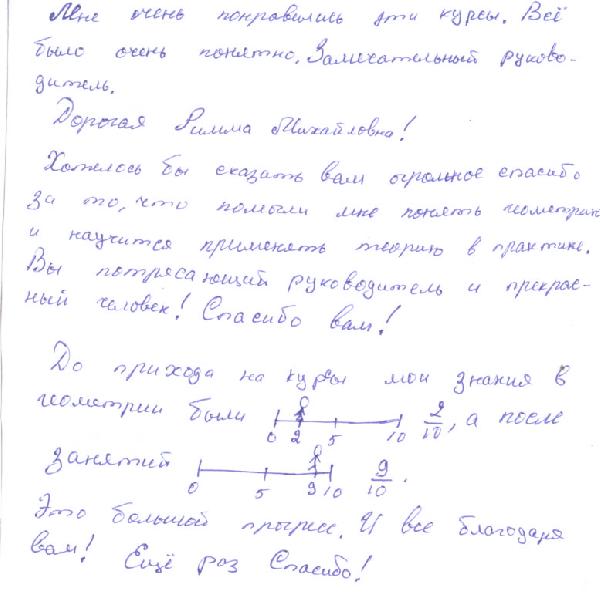 Мне очень понравились эти курсы. Всё
было очень понятно. Замечательный руково-
дитель.
Дорогая Римма Михайловна!
Хотелось бы сказать вам огромное спасибо
за то, что помогли мне понять геометрию
и научится применять теорию в практике.
Вы потресающий руководитель и прекрас-
ный человек! Спасибо вам!
До прихода на курсы мои знания в
геометрии были 0 2 5 10 2/10, а после
занятий 0 5 9 10 9/10.
Это большой прогресс. И все благодаря
вам! Ещё раз Спасибо!